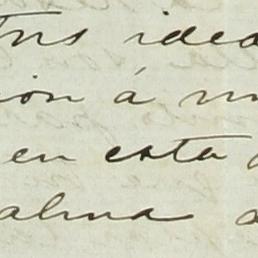 tus idea
ion á m
en esta
alma a